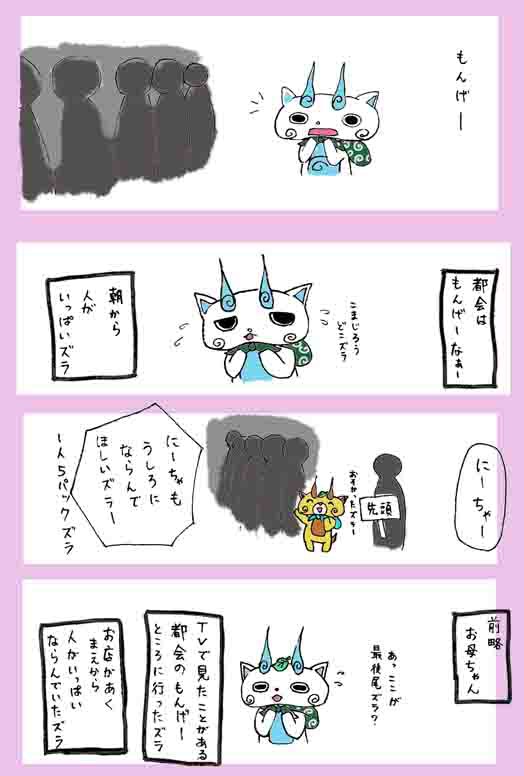 もんげー
都会は
もんげーなぁー
こまじろう
どこズラ
朝から
人が
いっぱいズラ
にーちゃー
先頭
おそかったズラー
にーちゃも
うしろに
ならんで
ほしいズラー
一人5パックズラ
前略
お母ちゃん
あっここが
最後尾ズラ？
TVで見たことがある
都会のもんげー
ところに行ったズラ
お店があく
まえから
人がいっぱい
ならんでいたズラ